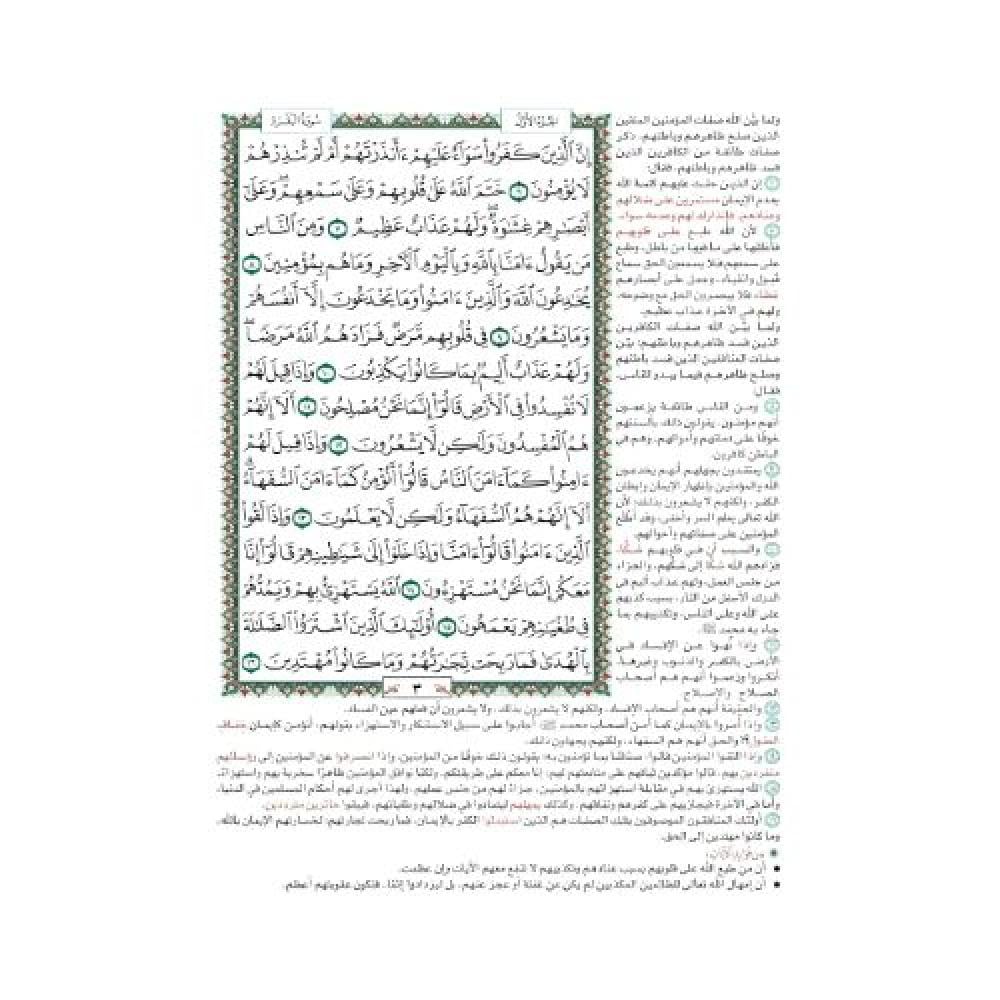 سورة البقرة
الجزء الأول
إِنَّ ٱلَّذِينَ كَفَرُوا۟ سَوَآءٌ عَلَيْهِمْ ءَأَنذَرْتَهُمْ أَمْ لَمْ تُنذِرْهُمْ
لَا يُؤْمِنُونَ ٦ خَتَمَ ٱللَّهُ عَلَىٰ قُلُوبِهِمْ وَعَلَىٰ سَمْعِهِمْ ۖ وَعَلَىٰٓ
أَبْصَٰرِهِمْ غِشَٰوَةٌ ۖ وَلَهُمْ عَذَابٌ عَظِيمٌ ٧ وَمِنَ ٱلنَّاسِ
مَن يَقُولُ ءَامَنَّا بِٱللَّهِ وَبِٱلْيَوْمِ ٱلْـَٔاخِرِ وَمَا هُم بِمُؤْمِنِينَ ٨
يُخَٰدِعُونَ ٱللَّهَ وَٱلَّذِينَ ءَامَنُوا۟ وَمَا يَخْدَعُونَ إِلَّآ أَنفُسَهُمْ
وَمَا يَشْعُرُونَ ٩ فِى قُلُوبِهِم مَّرَضٌ فَزَادَهُمُ ٱللَّهُ مَرَضًا ۖ
وَلَهُمْ عَذَابٌ أَلِيمٌۢ بِمَا كَانُوا۟ يَكْذِبُونَ ١٠ وَإِذَا قِيلَ لَهُمْ
لَا تُفْسِدُوا۟ فِى ٱلْأَرْضِ قَالُوٓا۟ إِنَّمَا نَحْنُ مُصْلِحُونَ ١١ أَلَآ إِنَّهُمْ
هُمُ ٱلْمُفْسِدُونَ وَلَٰكِن لَّا يَشْعُرُونَ ١٢ وَإِذَا قِيلَ لَهُمْ
ءَامِنُوا۟ كَمَآ ءَامَنَ ٱلنَّاسُ قَالُوٓا۟ أَنُؤْمِنُ كَمَآ ءَامَنَ ٱلسُّفَهَآءُ ۗ
أَلَآ إِنَّهُمْ هُمُ ٱلسُّفَهَآءُ وَلَٰكِن لَّا يَعْلَمُونَ ١٣ وَإِذَا لَقُوا۟
ٱلَّذِينَ ءَامَنُوا۟ قَالُوٓا۟ ءَامَنَّا وَإِذَا خَلَوْا۟ إِلَىٰ شَيَٰطِينِهِمْ قَالُوٓا۟ إِنَّا
مَعَكُمْ إِنَّمَا نَحْنُ مُسْتَهْزِءُونَ ١٤ ٱللَّهُ يَسْتَهْزِئُ بِهِمْ وَيَمُدُّهُمْ
فِى طُغْيَٰنِهِمْ يَعْمَهُونَ ١٥ أُو۟لَٰٓئِكَ ٱلَّذِينَ ٱشْتَرَوُا۟ ٱلضَّلَٰلَةَ
بِٱلْهُدَىٰ فَمَا رَبِحَت تِّجَٰرَتُهُمْ وَمَا كَانُوا۟ مُهْتَدِينَ ١٦
٣
ولما بيّن الله صفات المؤمنين المتقين
الذين صلح ظاهرهم وباطنهم، ذكر
صفات طائفة من الكافرين الذين
فسد ظاهرهم وباطنهم، فقال:
إن الذين حقت عليهم كلمة الله
بعدم الإيمان مستمرين على ضلالهم
وعنادهم، فإنذارك لهم وعدمه سواء.
لأن الله طبع على قلوبهم
فأغلقها على ما فيها من باطل، وطبع
على سمعهم فلا يسمعون الحق سماع
قبول وانقياد، وجعل على أبصارهم
غطاء فلا يبصرون الحق مع وضوحه،
ولهم في الآخرة عذاب عظيم.
ولما بيّن الله صفات الكافرين
الذين فسد ظاهرهم وباطنهم؛ بيّن
صفات المنافقين الذين فسد باطنهم
وصلح ظاهرهم فيما يبدو للناس،
فقال:
ومن الناس طائفة يزعمون
أنهم مؤمنون، يقولون ذلك بألسنتهم
خوفًا على دمائهم وأموالهم، وهم في
الباطن كافرون.
يعتقدون بجهلهم أنهم يخدعون
الله والمؤمنين بإظهار الإيمان وإبطان
الكفر، ولكنهم لا يشعرون بذلك؛ لأن
الله تعالى يعلم السر وأخفى، وقد أطلع
المؤمنين على صفاتهم وأحوالهم.
والسبب أن في قلوبهم شكًّا،
فزادهم الله شكًّا إلى شكّهم، والجزاء
من جنس العمل، ولهم عذاب أليم في
الدرك الأسفل من النار، بسبب كذبهم
على الله وعلى الناس، وتكذيبهم بما
جاء به محمد ﷺ.
وإذا نُهوا عن الإفساد في
الأرض بالكفر والذنوب وغيرها،
أنكروا وزعموا أنهم هم أصحاب
الصلاح والإصلاح.
والحقيقة أنهم هم أصحاب الإفساد، ولكنهم لا يشعرون بذلك، ولا يشعرون أن فعلهم عين الفساد.
وإذا أمروا بالإيمان كما آمن أصحاب محمد ﷺ؛ أجابوا على سبيل الاستنكار والاستهزاء بقولهم: أنؤمن كإيمان خفاف
العقول؟! والحق أنهم هم السفهاء، ولكنهم يجهلون ذلك.
وإذا التقوا المؤمنين قالوا: صدّقنا بما تؤمنون به؛ يقولون ذلك خوفًا من المؤمنين، وإذا انصرفوا عن المؤمنين إلى رؤسائهم
منفردين بهم، قالوا مؤكدين ثباتهم على متابعتهم لهم: إنا معكم على طريقتكم، ولكنا نوافق المؤمنين ظاهرًا سخرية بهم واستهزاءً.
الله يستهزئ بهم في مقابلة استهزائهم بالمؤمنين، جزاءً لهم من جنس عملهم، ولهذا أجرى لهم أحكام المسلمين في الدنيا،
وأما في الآخرة فيجازيهم على كفرهم ونفاقهم، وكذلك يمهلهم ليتمادوا في ضلالهم وطغيانهم، فيبقوا حائرين مترددين.
أولئك المنافقون الموصوفون بتلك الصفات هم الذين استبدلوا الكفر بالإيمان، فما ربحت تجارتهم؛ لخسارتهم الإيمان بالله،
وما كانوا مهتدين إلى الحق.
من فوائد الآيات:
• أن من طبع الله على قلوبهم بسبب عنادهم وتكذيبهم لا تنفع معهم الآيات وإن عظمت.
• أن إمهال الله تعالى للظالمين المكذبين لم يكن عن غفلة أو عجز عنهم، بل ليزدادوا إثمًا، فتكون عقوبتهم أعظم.